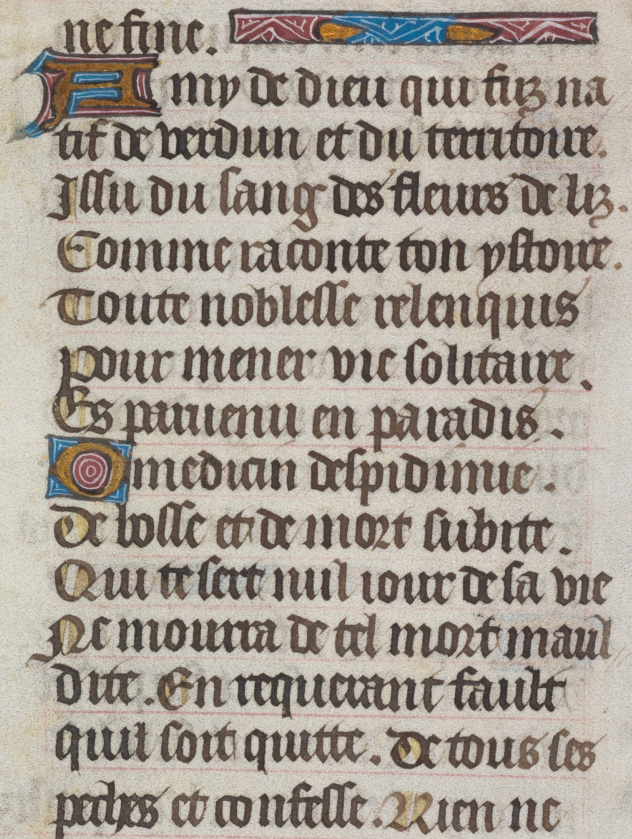 ne fine.
Amy de dieu qui fuz na
tif de verdun et du territoire.
Issu du sang des fleurs de liz.
Comme raconte ton ystoire.
Toute noblesse relenquis
pour mener vie solitaire.
Es paruenu en paradis.
O medicin despidimue.
De bosse et de mort subite.
Qui te sert nul iour de sa vie
Ne mourra de tel mort maul
dite. En requerant fault
quil soit quitte. De tous ses
peches et confesse. Rien ne